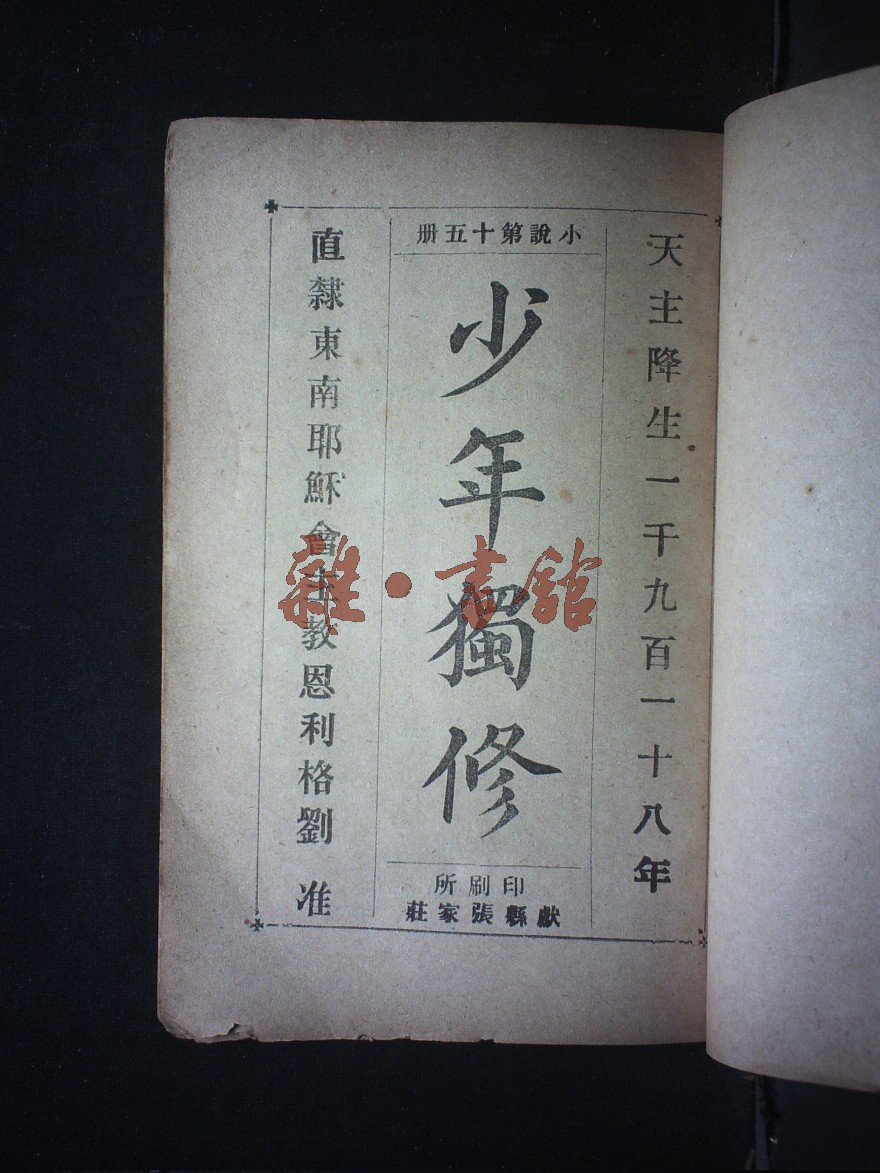 天主降生一千九百一十八年
小說第十五册
少年獨修
印刷所
獻縣張家莊
直隸東南耶穌會主教恩利格劉 准
雜·書館